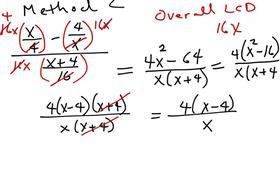 Method 2
Overall LCD
16X
4
16x (x/4) - (4/x) 16x
16x ((x+4)/16)
= (4x² - 64)/(x(x+4)) = (4(x²-16))/(x(x+4
(4(x-4)(x+4))/(x(x+4)) = (4(x-4))/x